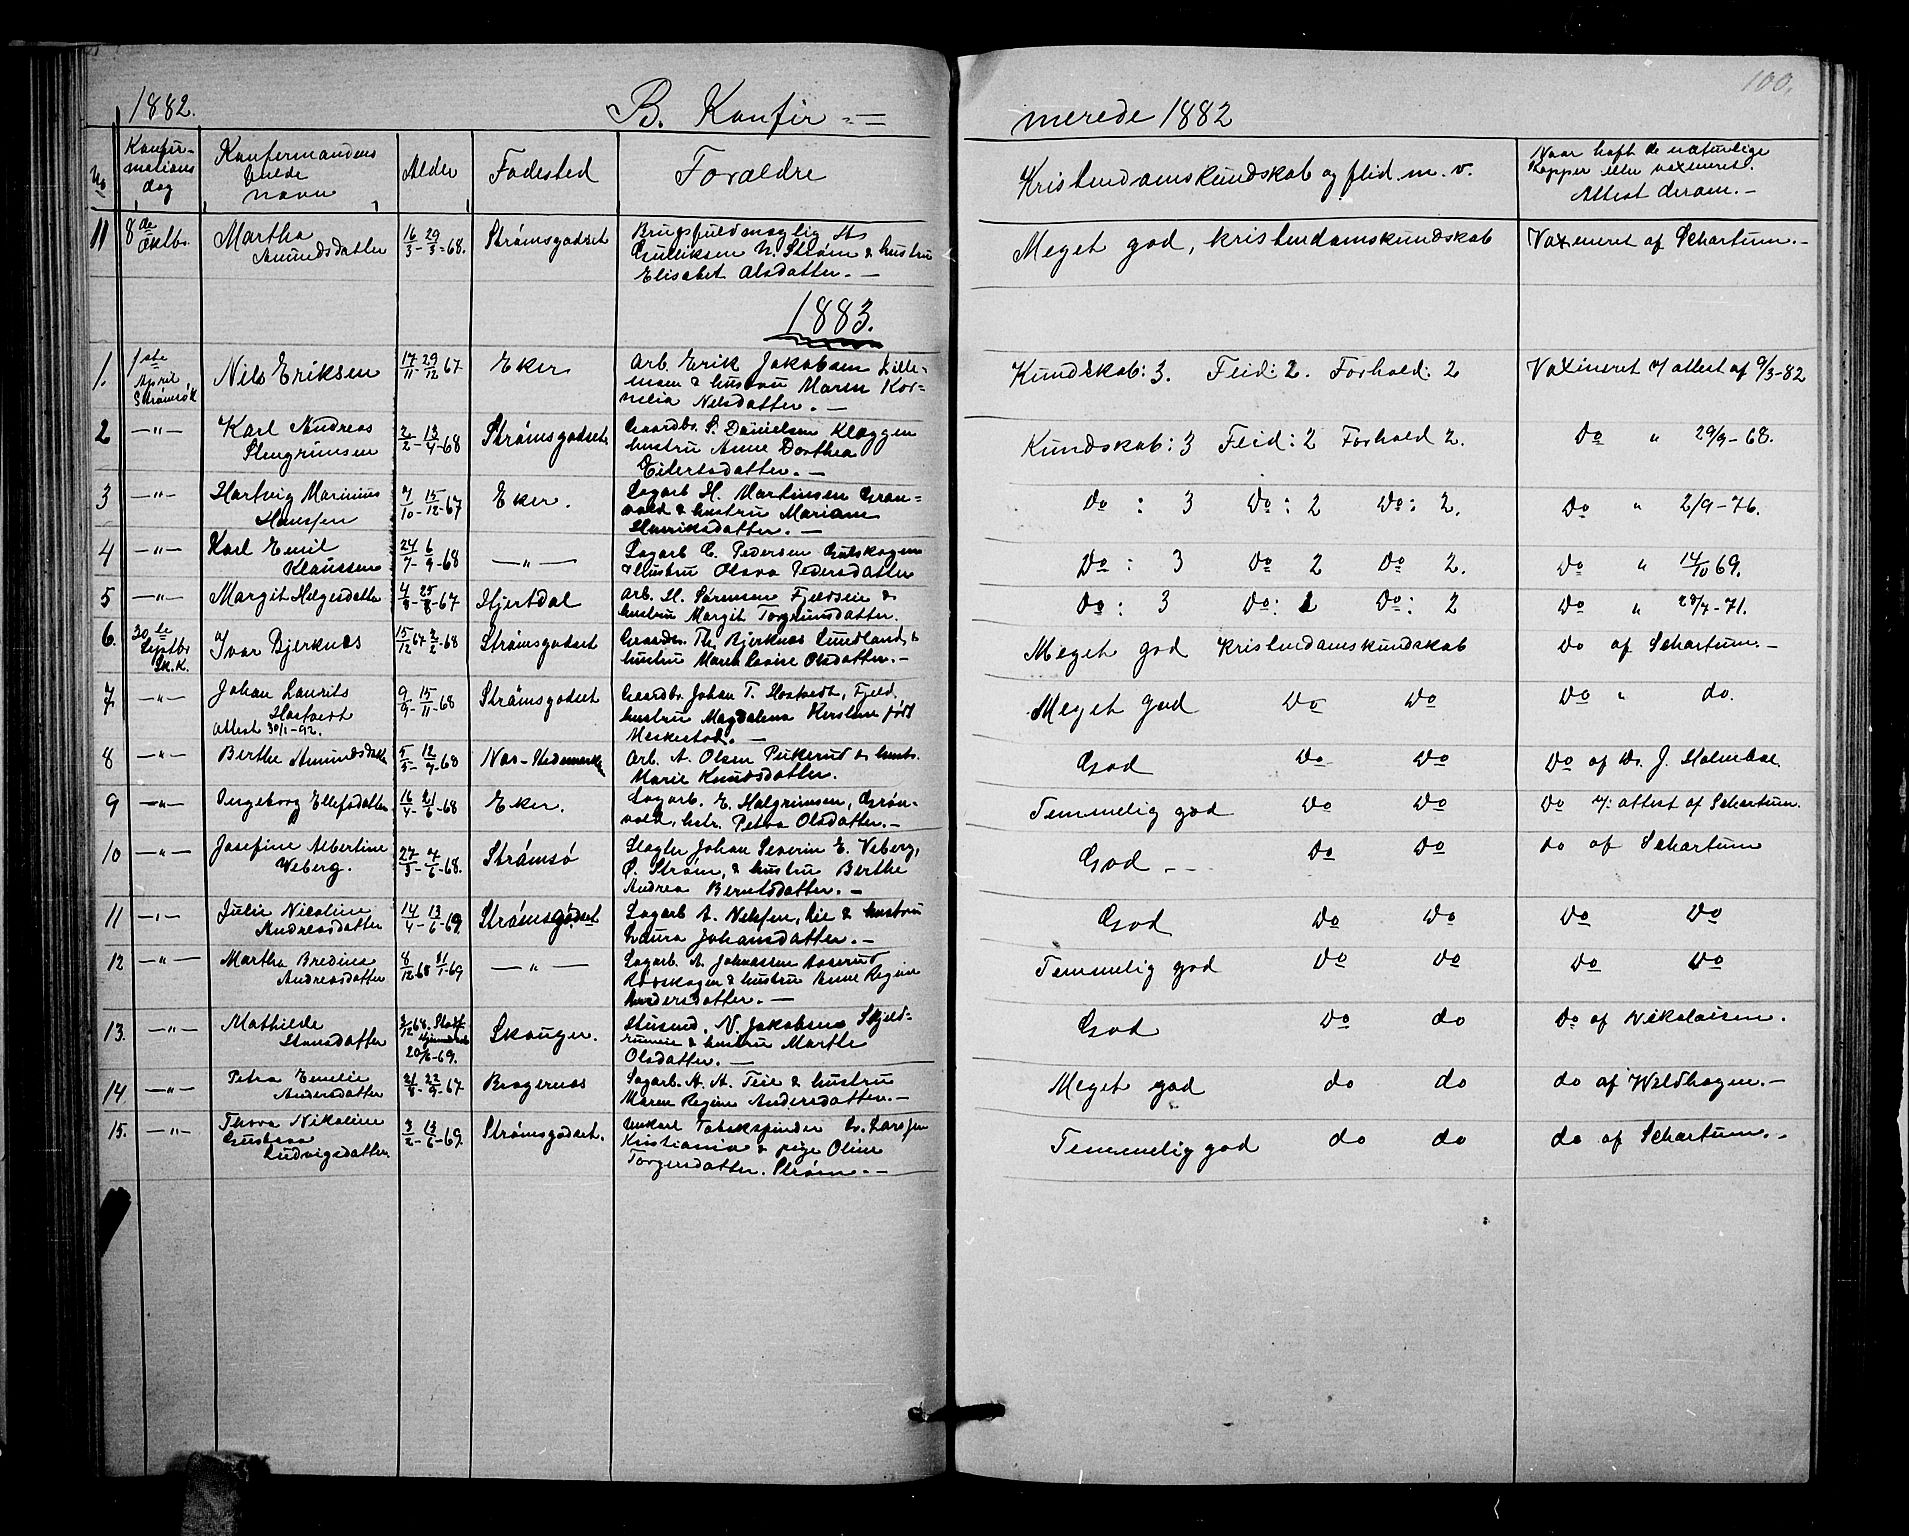 100.
1882. B. Konfir-= merede 1882
No Konfir-mations dag Konfermandens fulde navn Alder Fødested Forældre Kristendomskundskab og flid m. v. Naar haft de naturlige Kopper eller vaxineret. Attest derom.-
11 8de Oktbr. Martha Amundsdatter 16/3-29/3-68. Strømsgodset
Gulliksen N. Strøm & hustru
Elisabet Olsdatter.- Meget god, kristendomskundskab Vaxineret af Schartum.-
1883.
1. 1ste April Nils Eriksen 17/11-29/12 67 Eker Arb. Erik Jakobsen Lille-
moen & hustru Maren Kor-
nelia Nilsdatter.- Kundskab: 3. Flid: 2. Forhold: 2 Vaxineret attest af 9/3-82
2 -"- Karl Andreas Stengrimsen 2/2-13/4-68 Strømsgodset Gaardbr. S. Danielsen Kloggen
hustru Anne Dorthea
Eilertsdatter.- Kundskab: 3 Flid: 2 Forhold 2. Do " 29/9-68.
3 -"- Hartvig Marinius Hanssen 7/10-15/12-67 Eker. Sagarb H. Martinsen Grøn-
vold & hustru Mariam
Henriksdatter.- Do : 3 Do : 2 Do : 2. Do " 2/9-76.
4 -"- Karl Emil Klaussen 24/7-6/9-68 -"- Sagarb C. Pedersen Gulskogen
& Hustru Olava Pedersdatter Do : 3 Do 2 Do 2. Do " 14/10 69.
5 -"- Margit Helgesdatter 25/8-67 Hjertdal Arb. H. Sørensen Fjeldsein &
hustru Margit Torgrimsdatter. Do : 3 Do: 2 Do: 2 Do " -71.
6. 30te Septbr Sk.K. Ivar Bjerknæs 15/12 67 2/2-68 Strømsgodset Gaardbr. Th. Bjerknæs Sundland &
hustru Maren Lovise Olsdatter.- Meget god kristendomskundskab Do af Schartum.-
7 -"- Johan Laurits Hostvedt Attest 30/1-92. 9/9-15/11-68 Strømsgodset Gaardbr. Johan T. Hostvedt, Fjeld.
hustru Magdalena Kirstine født
Meskestad.- Meget god Do Do Do " do.
8 -"- Berthe Amundsdatter 5/3-12/4-68 Næs-Hedemarken Arb. A. Olsen Pukerud & hustr.
Marie Knudsdatter. God Do Do Do af Dr. J. Holmboe.
9 -"- Ingeborg Ellefsdatter 16/4-21/6-68 Eker. Sagarb. E. Halgrimsen, Grøn-
vold, hstr. Petra Olsdatter.- Temmelig god Do Do Do attest af Schartum.
10 -"- Josefine Albertine Weberg. 27/3-7/6-68. Strømsø Slagter Johan Severin E. Veberg,
Ø. Strøm, & hustru Berthe
Andrea Berntsdatter.- God -- Do Do do af Schartum
11 -"- Julie Nicoline Andreasdatter 14/4-13/6-69. Strømsgodset Sagarb A. Nilssen, Lie & hustru
Laura Johansdatter.- God Do Do Do Do
12 -"- Martha Bredine Andreasdatter 8/12 68 31/1-69 -"- Sagarb. A. Johnassen Aaserud
& hustru Anne Regine
Andersdatter.- Temmelig god Do Do Do Do
13. -"- Mathilde Hansdatter 20/6-69. Skouger. Husmd. N. Jakobsen Skjeld-
& hustru Marthe
Olsdatter.- God Do do Do af Nikolaisen.
14 -"- Petra Emelie Andersdatter 21/8-22/9-67 Bragernæs Sagarb. A. A. Teie & hustru
Maren Regine Andersdatter.- Meget god do do do af Wildhagen.-
15. -"- Thora Nikoline Gustava Ludvigsdatter 3/2-13/6-69. Strømsgodset. Unkarl Tobakspinder L. Larssen
Kristiania & pige Oline
Torgersdatter. Strøm.- Temmelig god do do do af Schartum.-